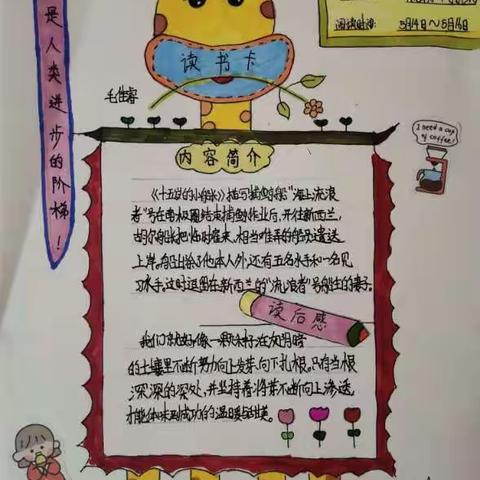 是人类进步的阶梯！
阅读时间：5月14日～5月16日
读书卡
I need a cup
of coffee!
内容简介
《十五岁的小船长》描写捕鲸船“海上流浪
者”号在南极圈结束捕鲸作业后，开往新西兰，
胡尔船长把临时雇来、相当难弄的船员遣送
上岸。船上除了他本人外，还有五名水手和一名见
习水手，这时运留在新西兰的“流浪者”号船主的妻子。
读后感
我们就好像一颗种子在灰暗
的土壤里不断努力向上发芽，向下扎根。只有当根
深深的深处，并坚持着将芽不断向上渗透，
才能体味到成功的温暖与甜美。